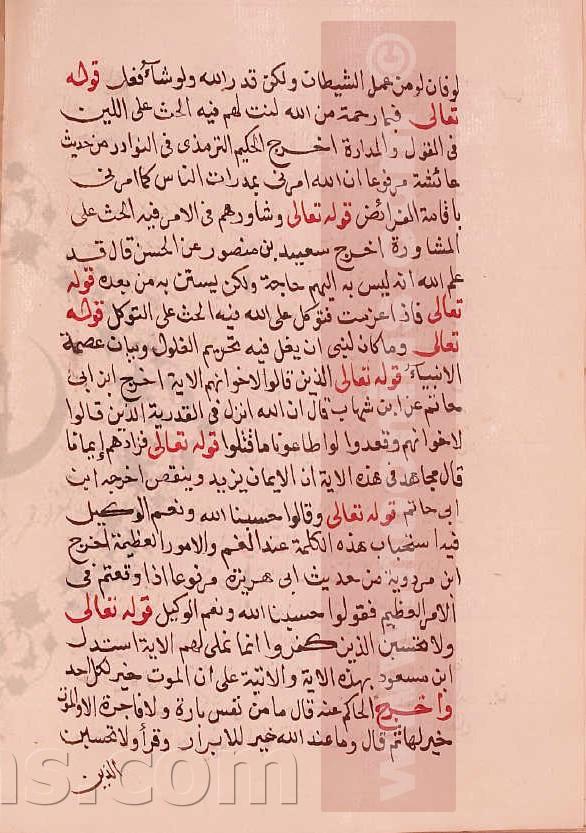 لوفان لو من عمل الشيطان ولكن قدر الله ولو شاء فعل قوله
تعالى فبما رحمة من الله لنت لهم فيه الحث على اللين
فى القول والمدارة اخرج الحكيم الترمذى فى النوادر من حديث
عائشة مرفوعا ان الله امرنى بمدرات الناس كما امرنى
باقامة الفرائض قوله تعالى وشاورهم فى الامر فيه الحث على
المشاورة اخرج سعيد بن منصور عن الحسن قال قد
علم الله انه ليس به اليهم حاجة ولكن يستن به من بعده قوله
تعالى فاذا عزمت فتوكل على الله فيه الحث على التوكل قوله
تعالى وما كان لنبى ان يغل فيه تحريم الغلول وبيان عصمة
الانبياء قوله تعالى الذين قالوا لاخوانهم الاية اخرج ابن ابى
حاتم عن ابن شهاب قال ان الله انزل فى القدرية الذين قالوا
لاخوانهم وقعدوا لو اطاعونا ما قتلوا قوله تعالى فزادهم إيمانا
قال مجاهد فى هذه الاية ان الايمان يزيد وينقص اخرجه ابن
ابى حاتم قوله تعالى وقالوا حسبنا الله ونعم الوكيل
فيه استحباب هذه الكلمة عند الغم والامور العظيمة اخرج
ابن مردوية من حديث ابى هريرة مرفوعا اذا وقعتم فى
الامر العظيم فقولوا حسبنا الله ونعم الوكيل قوله تعالى
ولا تحسبن الذين كفروا انما نملى لهم الاية استدل
ابن مسعود بهذه الاية والاتية على ان الموت خير لكل احد
واخرج الحاكم عنه قال ما من نفس بارة ولا فاجرة الا والموت
خير لها ثم قال وما عند الله خير للابرار وقرأ ولا تحسبن
الذين